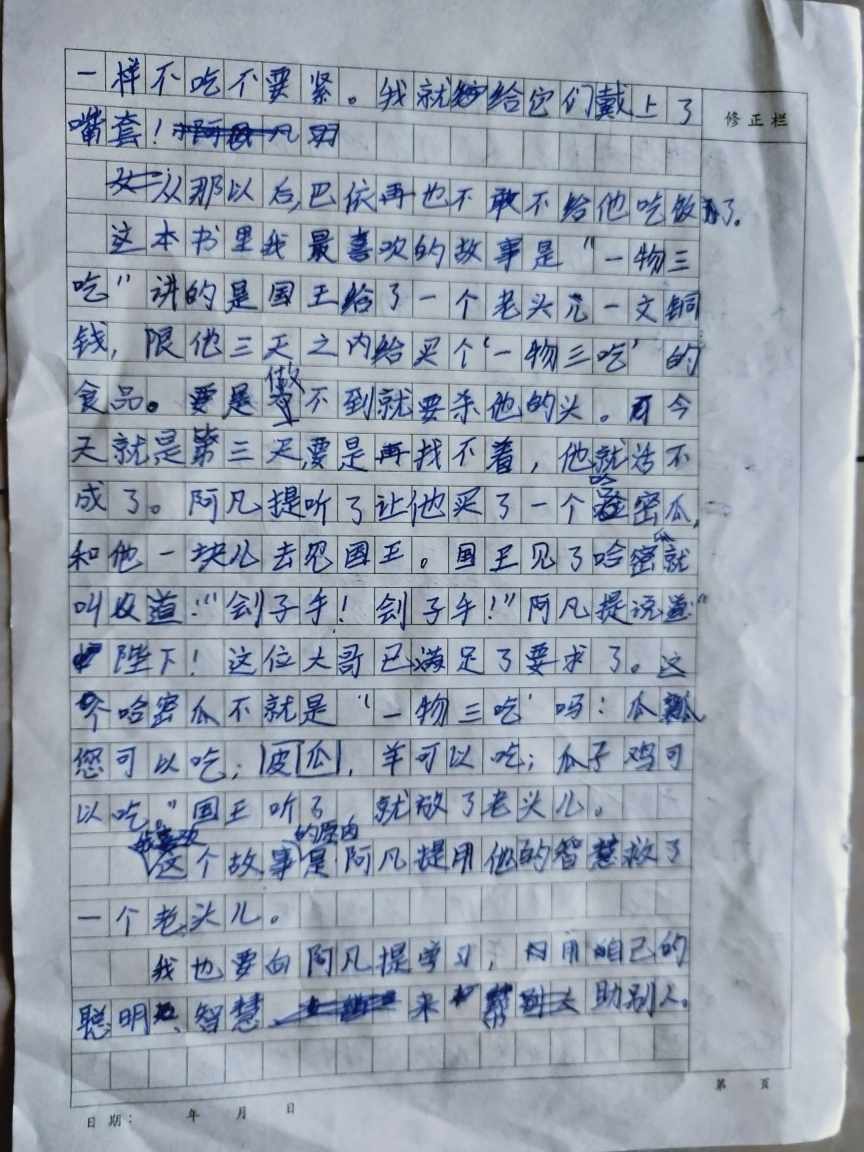 一样不吃不要紧。我就给它们戴上了
修正栏
嘴套！
从那以后,巴依再也不敢不给他吃饭了。
这本书里我最喜欢的故事是“一物三
吃”讲的是国王给了一个老头儿一文铜
钱，限他三天之内给买个“一物三吃”的
食品。要是做不到就要杀他的头。今
天就是第三天,要是再找不着，他就活不
成了。阿凡提听了让他买了一个哈密瓜,
和他一块儿去见国王。国王见了哈密瓜就
叫道：“刽子手！刽子手！”阿凡提说道:“
陛下！这位大哥已满足了要求了。这
个哈密瓜不就是“一物三吃”吗：瓜瓤
您可以吃；皮瓜，羊可以吃；瓜子鸡可
以吃。”国王听了 就放了老头儿。
我喜欢这个故事的原由是阿凡提用他的智慧救了
一个老头儿。
我也要向阿凡提学习，用自己的
聪明、智慧来帮助别人。
第 页
日期： 年 月 日